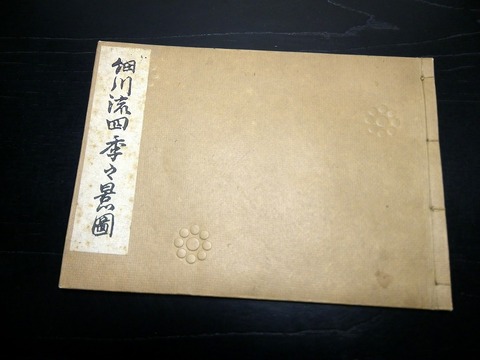 細川流四季之景圖